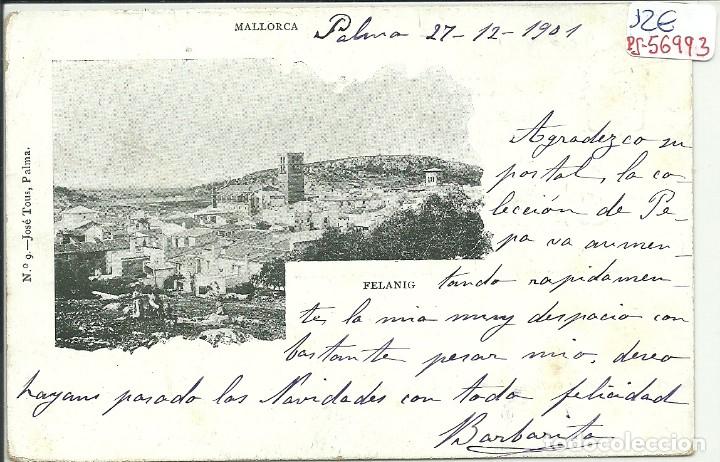 MALLORCA
Palma 27-12-1901
12€
PS-56993
Nº 9.—José Tous, Palma.
FELANIG
Agradezco su
postal, la co-
lección de Pe-
pa va aumen-
tando rapidamen-
te, la mia muy despacio con
bastante pesar mio, deseo
hayans pasado las Navidades con toda felicidad
Barbarita
todocoleccion